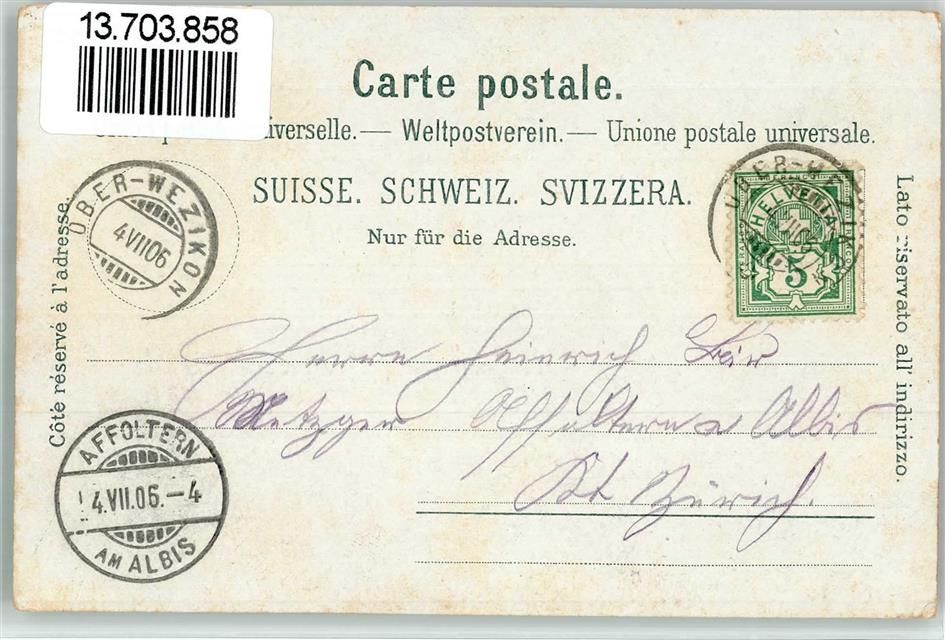 13.703.858
Carte postale.
universelle. — Weltpostverein. — Unione postale universale.
SUISSE. SCHWEIZ. SVIZZERA.
Nur für die Adresse.
Côté réservé à l'adresse.
Lato riservato all' indirizzo.
OBER-WEZIKON
4 VII 06
OBER-WEZIKON
FRANCO
HELVETIA
5
Herrn Heinrich Bär
Metzger Affoltern a Albis
Kt Zürich.
AFFOLTERN
4.VII.06.-4
AM ALBIS